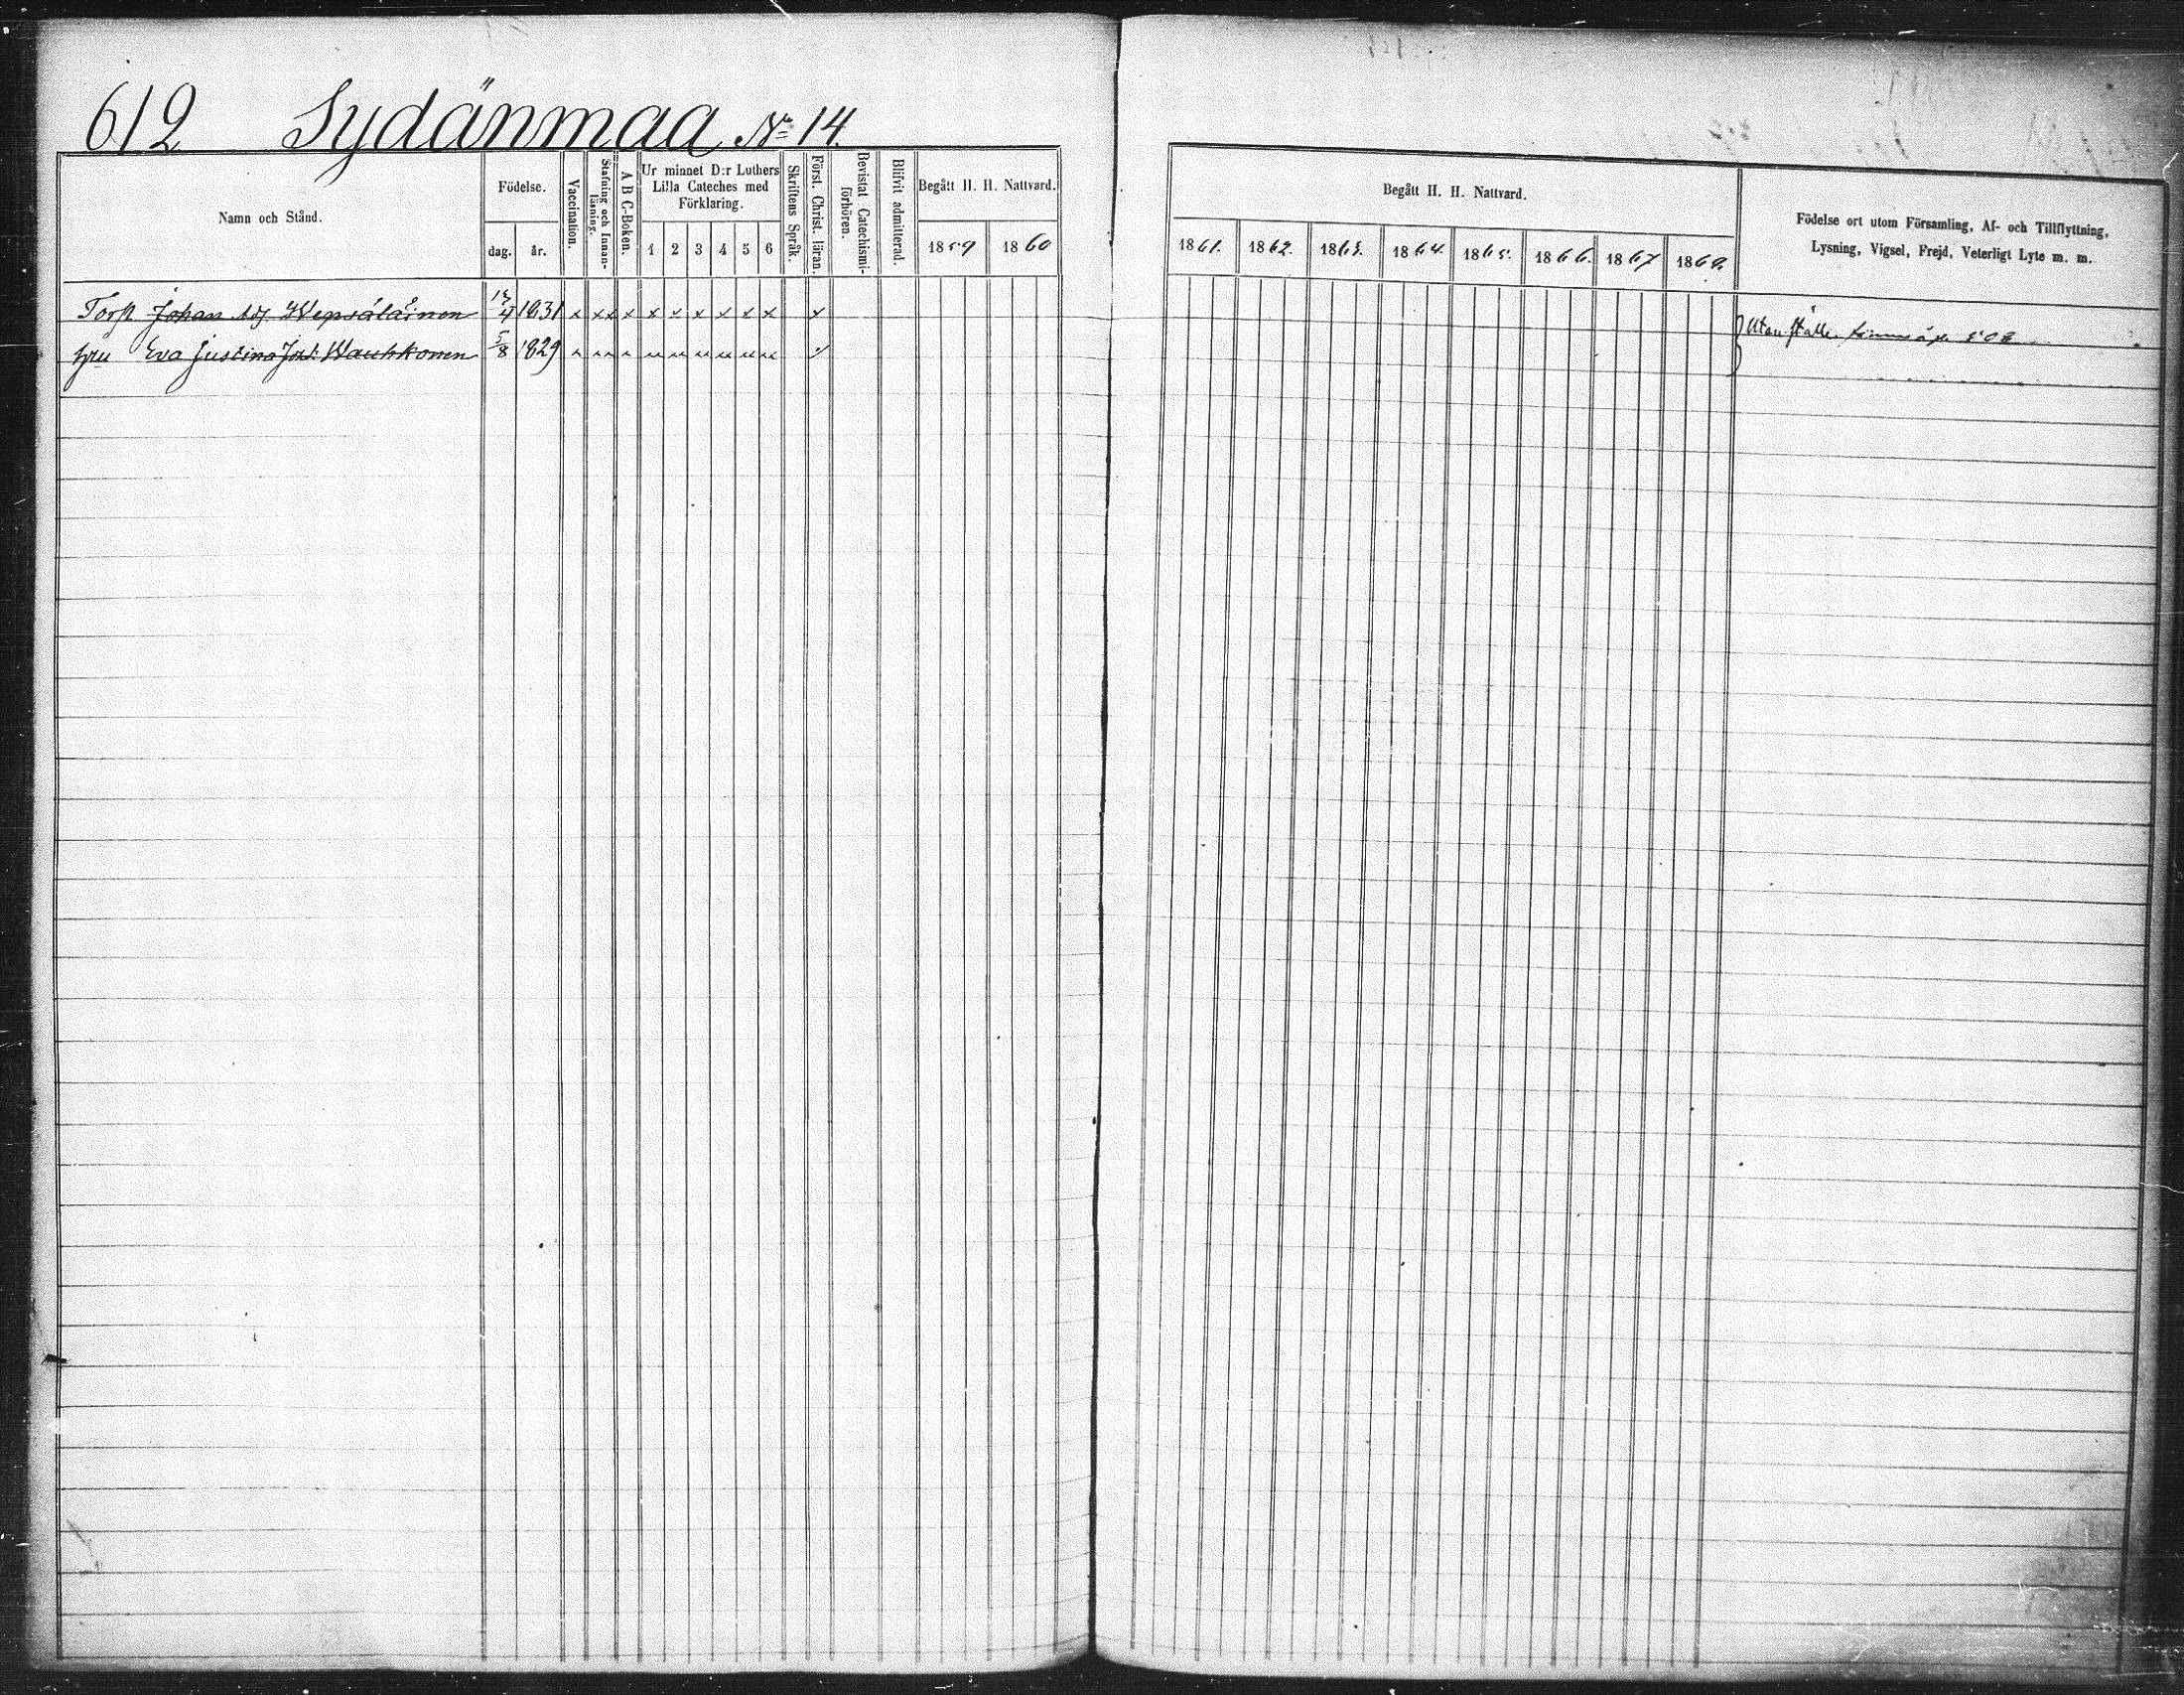 612 Sydänmaa No 14.
Namn och Stånd.
Födelse.
dag.
år.
Vaccination.
Stafning och Innan-
läsning.
A B C-Boken.
Ur minnet D:r Luthers
Lilla Cateches med
Förklaring.
1 2 3 4 5 6
Skriftens Språk.
Först. Christ. läran.
Bevistat Catechismi-
förhören.
Blifvit admitterad.
Begått H. H. Nattvard.
1859 1860
Begått H. H. Nattvard.
1861. 1862. 1863. 1864. 1865. 1866. 1867 1868.
Födelse ort utom Församling, Af- och Tillflyttning,
Lysning, Vigsel, Frejd, Veterligt Lyte m. m.
Torp Johan Adf Wepsäläinen 4 1831 x x x x x x x x x x x
hu Eva Justina Wauhkonen 5/8 1829
Utan ställe